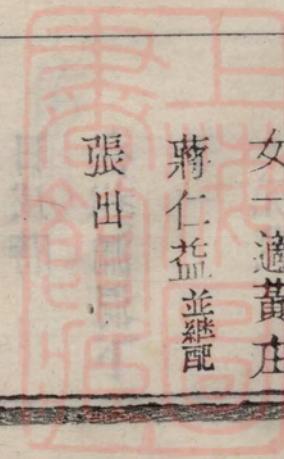 女一適黃庄
蔣仁益並継配
張出